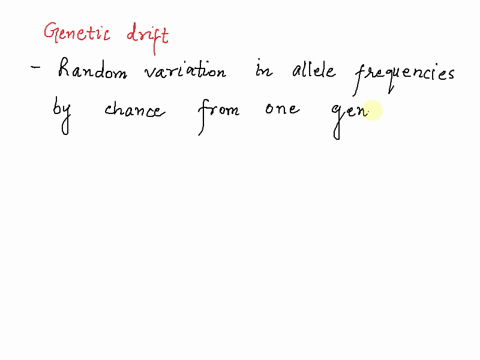 Genetic drift
- Random variation in allele frequencies
by chance from one gen